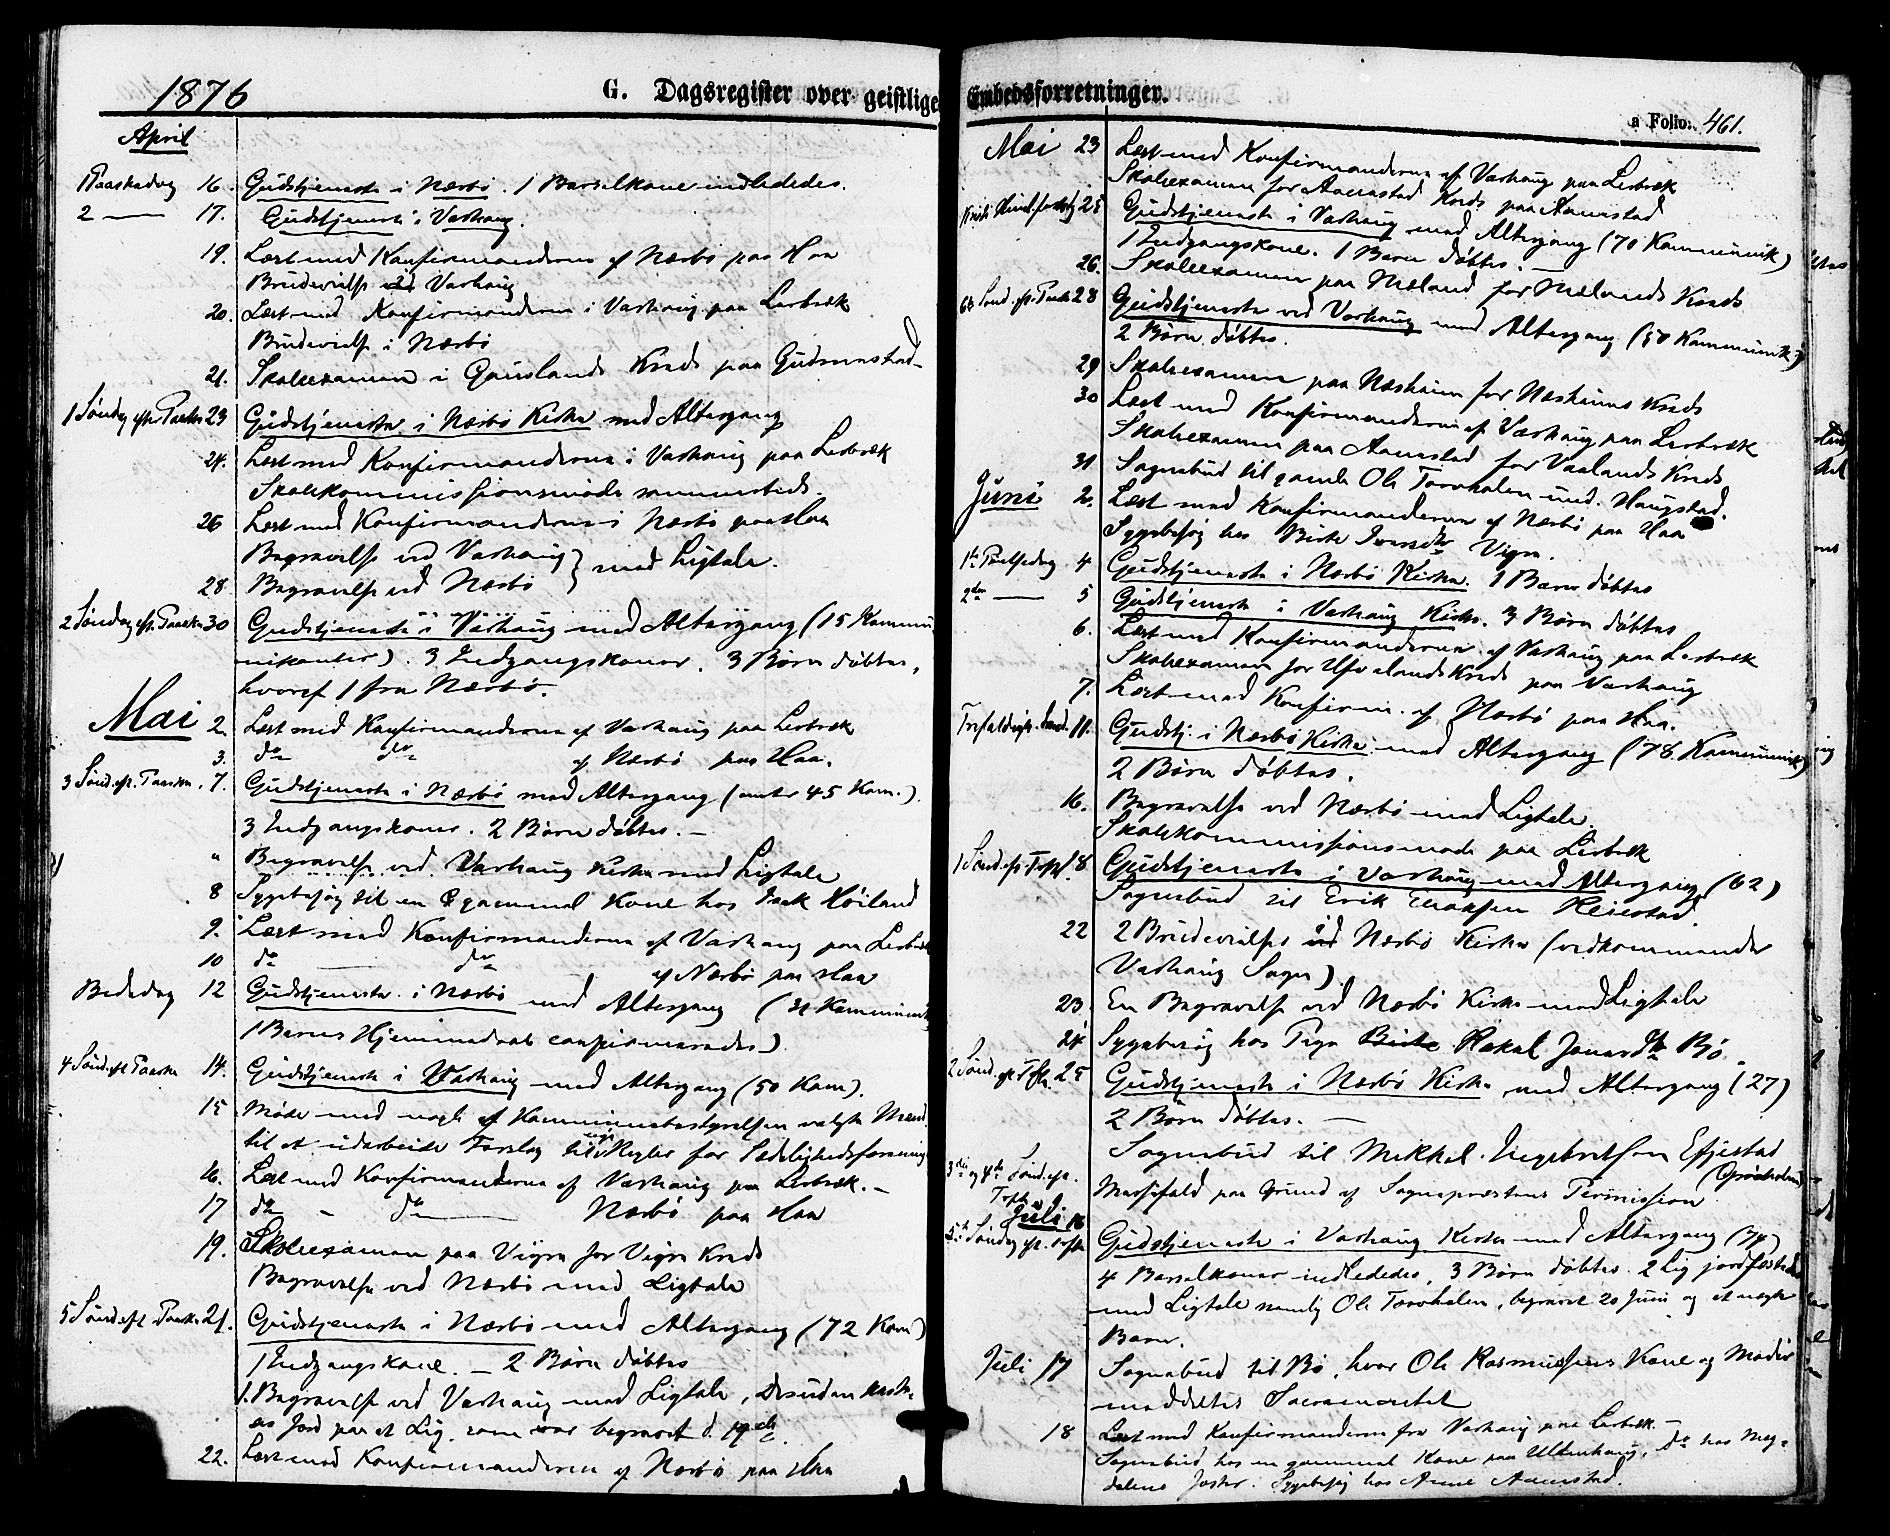 1876
G. Dagsregister over geistlige
April
1 Paaskedag 16. Gudstjeneste i Nærbø. 1 Barselkone indlededes.
2 — 17. Gudstjeneste i Varhaug.
19. Læst med Konfirmanderne af Nærbø paa Haa
Brudevielse Varhaug
20. Læst med Konfirmanderne i Varhaug paa Lerbræk
Brudevielse i Nærbø
21. Skoleexamen i Gauslands Kreds paa Gudmestad
1 Søndag efter Paaske 23 Gudstjeneste i Nærbø Kirke med Altergang
24. Læst med Konfirmanderne i Varhaug paa Lerbræk
Skolekommissionsmøde sammesteds.
26 Læst med Konfirmanderne i Nærbø paa Haa
Begravelse ved Varhaug } med Ligtale.
28. Begravelse ved Nærbø
2 Søndag eft. Paaske 30 Gudstjeneste i Varhaug med Altergang (15 Kommu
nikanter). 3 Indgangskoner. 3 Børn døbtes,
hvoraf 1 fra Nærbø.
Mai 2 Læst med Konfirmanderne af Varhaug paa Lerbræk
3. do do af Nærbø paa Haa.
3 Sønd. eft. Paaske. 7. Gudstjeneste i Nærbø med Altergang (45 Kom.).
3 Indgangskoner. 2 Børn døbtes. —
" Begravelse ved Varhaug Kirke med Ligtale
8 Sygebesøg til en gammel Kone hos Isak Høiland
9. Læst med Konfirmanderne af Varhaug paa Lerbræk
10 do — do af Nærbø paa Haa
Bededag 12 Gudstjeneste i Nærbø med Altergang ( Kommunik
1 Barns Hjemmedaab confirmeredes)
4 Sønd. eft Paaske 14. Gudstjeneste i Varhaug med Altergang (50 Kom).
15 Møde med nogle af Kommunebestyrelsen valgte Mænd
til at udarbeide Forslag til Regler for Sædelighedsforening
16. Læst med Konfirmanderne af Varhaug paa Lerbræk. —
17 do - do — Nærbø paa Haa
19. Skoleexamen paa Vigre for Vigre Kreds
Begravelse ved Nærbø med Ligtale
5 Sønd. eft Paaske 21. Gudstjeneste i Nærbø med Altergang (72 Kom)
1 Indgangskone. — 2 Børn døbtes
1. Begravelse ved Varhaug med Ligtale, Desuden kast-
es Jord paa et Lig, som var begravet d. 19de.
22. Læst med Konfirmanderne af Nærbø paa Haa
Embedsforretninger.
a Folio: 461.
Mai 23 Læst med Konfirmanderne af Varhaug paa Lerbræk
Skoleexamen for Aanestad Kreds paa Aanestad
Kristi Himmelfartsdg 25 Gudstjeneste i Varhaug med Altergang (70 Kommunik)
1 Indgangskone. 1 Barn døbtes. —
26. Skoleexamen paa Mæland for Mælands Kreds
6te Sønd. eft. Paaske 28 Gudstjeneste ved Varhaug med Altergang (50 Kommunik.)
2 Børn døbtes.
29 Skoleexamen paa Næsheim for Næsheims Kreds
30 Læst med Konfirmanderne af Varhaug paa Lerbræk
Skoleexamen paa Aanestad for Vaalands Kreds
31 Sognebud til gamle Ole Torvhalen und. Haugstad.
Juni 2. Læst med Konfirmanderne af Nærbø paa Haa
Sygebesøg hos Birte Iversdtr Vigre.
1te Pintsedag 4 Gudstjeneste i Nærbø Kirke. 1 Barn døbtes
2den — 5 Gudstjeneste i Varhaug Kirke. 3 Børn døbtes
6. Læst med Konfirmanderne af Varhaug paa Lerbræk
Skoleexamen for Kreds paa Varhaug
7. Læst med Konfirm. af Nærbø paa Haa.
Trefoldigh. Sønd. 11. Gudstj. i Nærbø Kirke med Altergang (78 Kommunik)
2 Børn døbtes.
16. Begravelse ved Nærbø med Ligtale.
Skolekommissionsmøde paa Lerbræk
1 Sønd. eft. Trefol. 18 Gudstjeneste i Varhaug med Altergang (62)
Sognebud til Erik
22 2 Brudevielser i Nærbø Kirke (vedkommende
Varhaug Sogn).
23. En Begravelse ved Nærbø Kirke med Ligtale
24 Sygebesøg hos Pige Rakel Jonasdtr Bø.
2 Sønd. eft Trefk. 25 Gudstjeneste i Nærbø Kirke med Altergang (27)
2 Børn døbtes. —
Sognebud til Mikkel Ingebretsen
3die og 4de Sønd. eft. Messefald paa Grund af Sognepræstens Permission
Juli 16
5te Søndag eft. Gudstjeneste i Varhaug Kirke med Altergang
4 Barselkoner indlededes, 3 Børn døbtes. 2 Lig jordfæstedes
med Ligtale nemlig Ole Torvhalen, begravet 20 Juni og et uægte
Barn.
Juli 17 Sognebud til Bø, hvor Ole Rasmussens Kone og Moder
meddeltes Sacramentet
18 Læst med Konfirmanderne fra Varhaug paa Lerbræk. —
Sognebud hos en gammel Kone paa Ulenhaug, do hos Mag-
delene Sygebesøg hos Anne Aanestad.